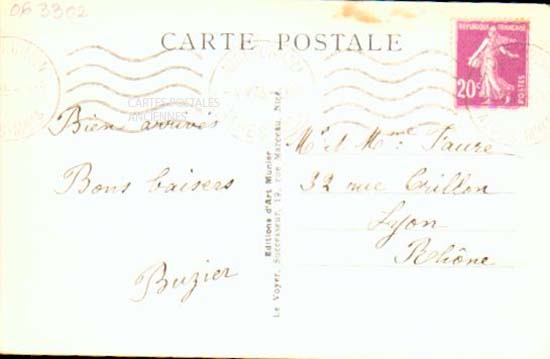 063302
CARTE POSTALE
RÉPUBLIQUE FRANÇAISE
20c
POSTES
CARTES POSTALES
ANCIENNES
Bien arrivés
Bons baisers
Buzier
Editions d'Art Munier
Le Voyer, Successeur, 19, rue Marceau, Nice
Mr et Mme Faure
32 rue Crillon
Lyon
Rhône